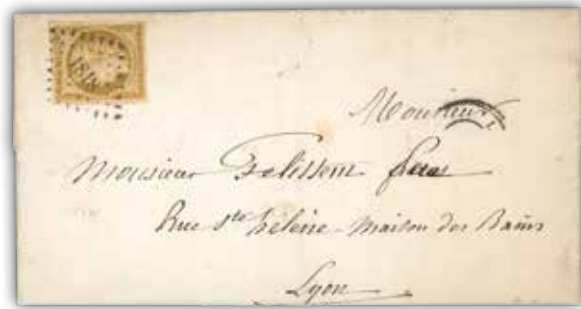 1818
Monsieur
Monsieur Felissent
Rue Ste hélène maison des Bains
Lyon